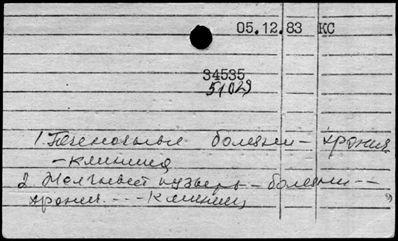 05.12.83 КС
34535
51029
1. Печеночные болезни - хрония
- клиника
2. Желчный пузырь - болезни --
хрони. --- клиника